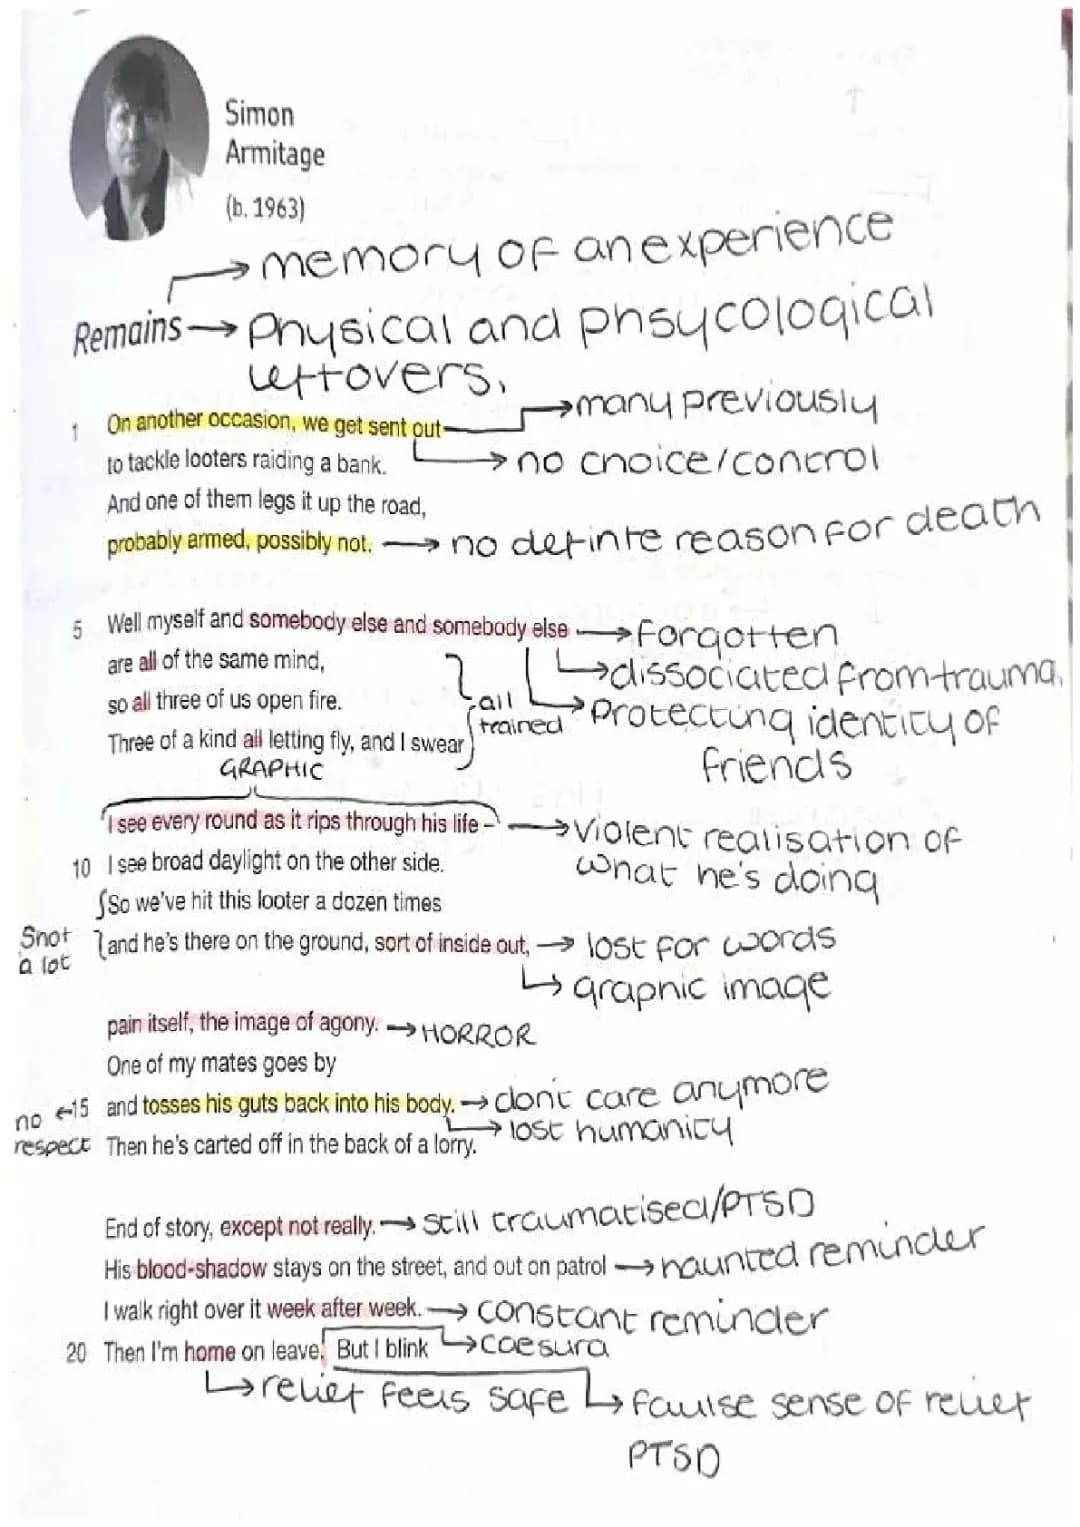 Simon
Armitage
(b. 1963)
→ memory of an experience
Remains → Physical and phsycological
leftovers.
→ many previously
1 On another occasion, we get sent out
to tackle looters raiding a bank. → no choice/control
And one of them legs it up the road,
probably armed, possibly not. → no definte reason for death
5 Well myself and somebody else and somebody else → forgotten
are all of the same mind, → dissociated from trauma.
so all three of us open fire. all trained → Protecting identity of
Three of a kind all letting fly, and I swear friends
GRAPHIC
I see every round as it rips through his life – → violent realisation of
10 I see broad daylight on the other side. what he's doing
So we've hit this looter a dozen times
Shot a lot and he's there on the ground, sort of inside out, → lost for words
→ graphic image
pain itself, the image of agony. → HORROR
One of my mates goes by
15 and tosses his guts back into his body. → don't care anymore
no respect Then he's carted off in the back of a lorry. → lost humanity
End of story, except not really. → still traumatised/PTSD
His blood-shadow stays on the street, and out on patrol → haunted reminder
I walk right over it week after week. → constant reminder
20 Then I'm home on leave. But I blink → caesura
→ relief feels safe → faulse sense of relief
PTSD